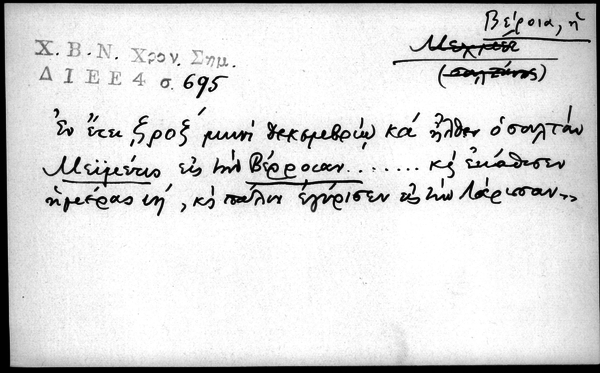 Βέροια, ἡ
Μεχμέτ
(σουλτάνος)
Χ. Β. Ν. Χρον. Σημ.
Δ Ι Ε Ε 4 σ. 695
Ἐν ἔτει ͵ζροξ΄ μηνὶ δεκεμβρίῳ κα΄ ἦλθεν ὁ σουλτάν
Μεϊμέτις εἰς τὴν Βέρροιαν ........ κ ἐκάθισεν
ἡμέρας ιη΄, κ πάλιν ἐγύρισεν εἰς τὴν Λάρισαν...